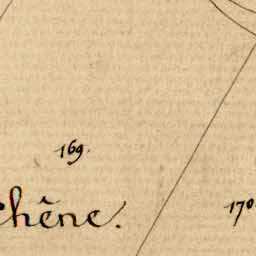 169.
chêne.
170